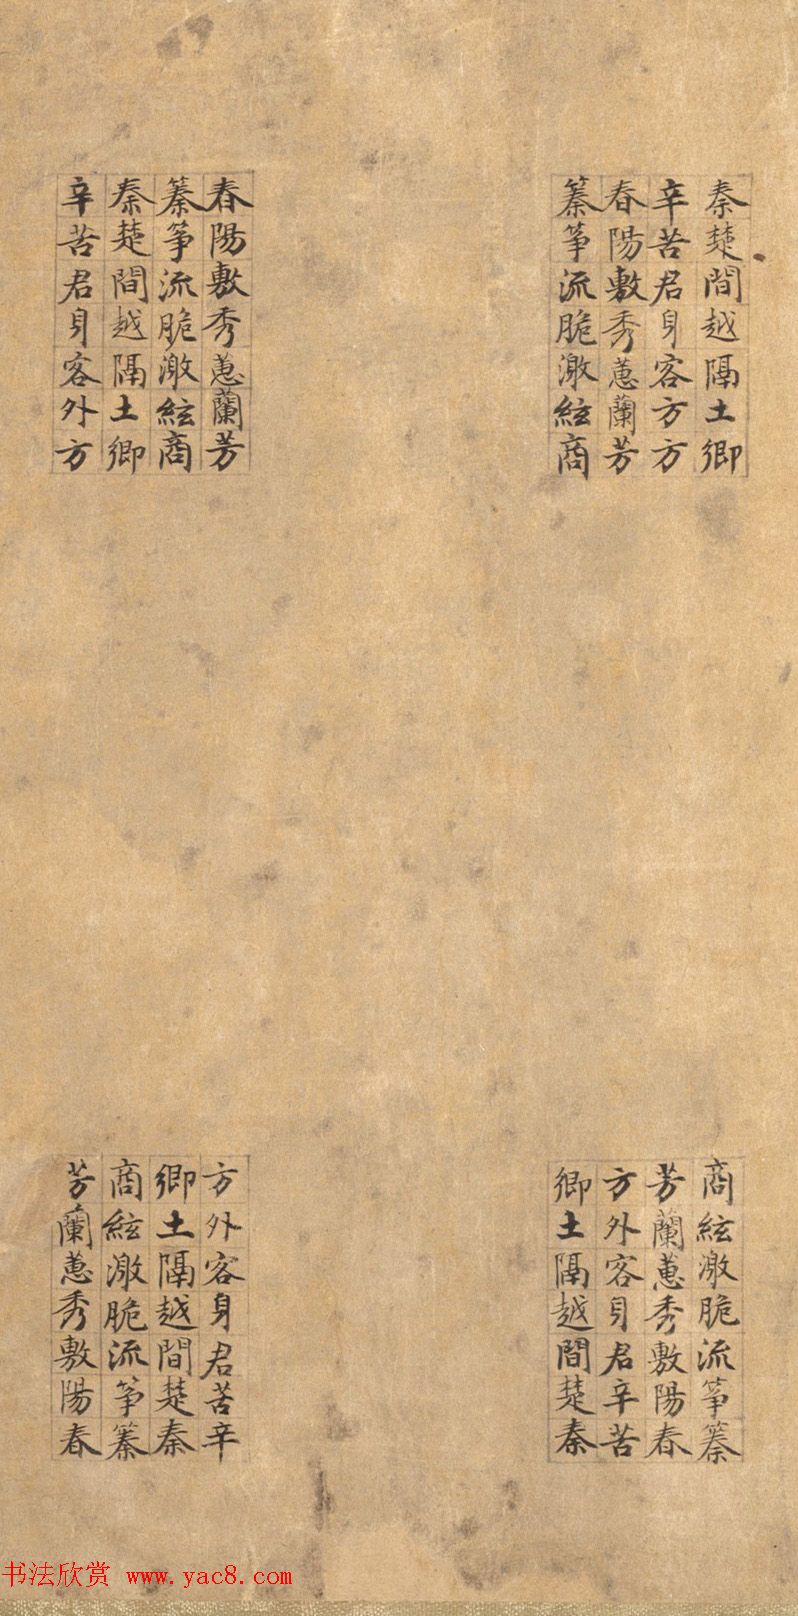 秦楚間越隔土卿
辛苦君身客方方
春陽敷秀蕙蘭芳
䈜筝流脆激絃商
春陽敷秀蕙蘭芳
䈜筝流脆激絃商
秦楚間越隔土卿
辛苦君身客外方
商絃激脆流筝䈜
芳蘭蕙秀敷陽春
方外客身君辛苦
卿土隔越間楚秦
方外客身君苦辛
卿土隔越間楚秦
商絃激脆流筝䈜
芳蘭蕙秀敷陽春
书法欣赏 www.yac8.com